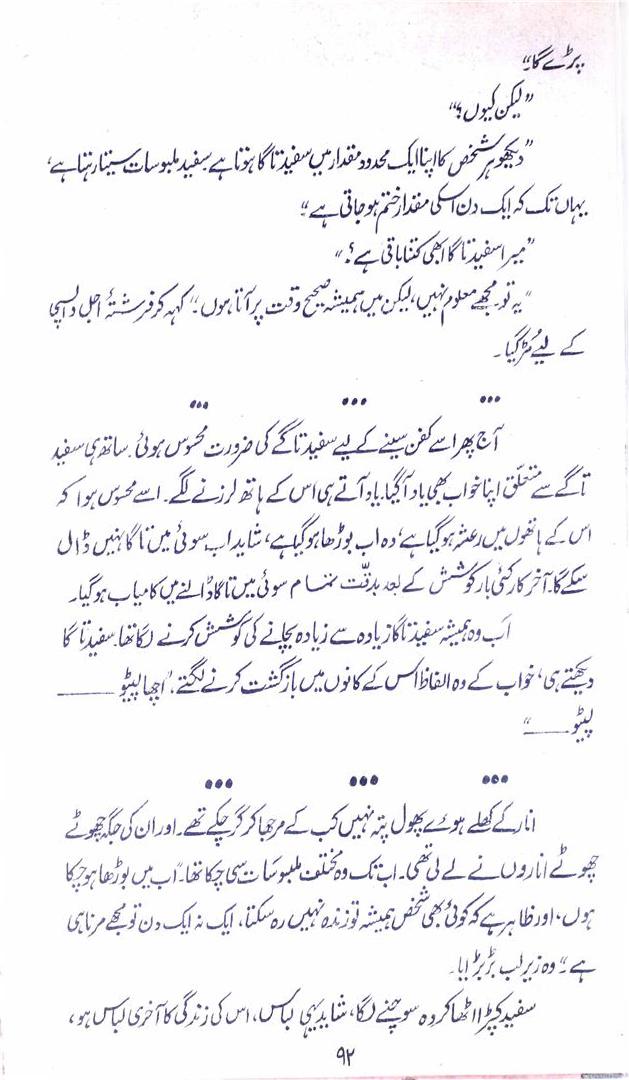 پڑے گا۔“
”لیکن کیوں؟“
”دیکھو ہر شخص کا اپنا ایک محدود مقدار میں سفید تاگا ہوتا ہے سفید ملبوسات سیتا رہتا ہے،
یہاں تک کہ ایک دن اسکی مقدار ختم ہو جاتی ہے۔“
”میرا سفید تاگا ابھی کتنا باقی ہے؟“
”یہ تو مجھے معلوم نہیں، لیکن میں ہمیشہ صحیح وقت پر آتا ہوں۔“ کہہ کر فرشتۂ اجل واپسی
کے لیے مُڑ گیا۔
••• ••• •••
آج پھر اسے کفن سینے کے لیے سفید تاگے کی ضرورت محسوس ہوئی۔ ساتھ ہی سفید
تاگے سے متعلّق اپنا خواب بھی یاد آگیا۔ یاد آتے ہی اس کے ہاتھ لرزنے لگے۔ اسے محسوس ہوا کہ
اس کے ہاتھوں میں رعشہ ہو گیا ہے، وہ اب بوڑھا ہو گیا ہے، شاید اب سوئی میں تاگا نہیں ڈال
سکے گا۔ آخر کار کئی بار کوشش کے بعد بدقّت تمام سوئی میں تاگا ڈالنے میں کامیاب ہو گیا۔
اَب وہ ہمیشہ سفید تاگا زیادہ سے زیادہ بچانے کی کوشش کرنے لگا تھا۔ سفید تاگا
دیکھتے ہی، خواب کے وہ الفاظ اس کے کانوں میں بازگشت کرنے لگتے، ”اچھا لپیٹو ــــــــ
لپیٹو ــــــــ“
••• ••• •••
انار کے کھلے ہوے پھول پتہ نہیں کب کے مرجھا کر گر چکے تھے۔ اور ان کی جگہ چھوٹے
چھوٹے اناروں نے لے لی تھی۔ اب تک وہ مختلف ملبوسات سی چکا تھا۔ ”اب میں بوڑھا ہو چکا
ہوں، اور ظاہر ہے کہ کوئی بھی شخص ہمیشہ تو زندہ نہیں رہ سکتا، ایک نہ ایک دن تو مجھے مرنا ہی
ہے۔“ وہ زیر لب بڑبڑایا۔
سفید کپڑا اٹھا کر وہ سوچنے لگا، شاید یہی لباس، اس کی زندگی کا آخری لباس ہو،
۹۲